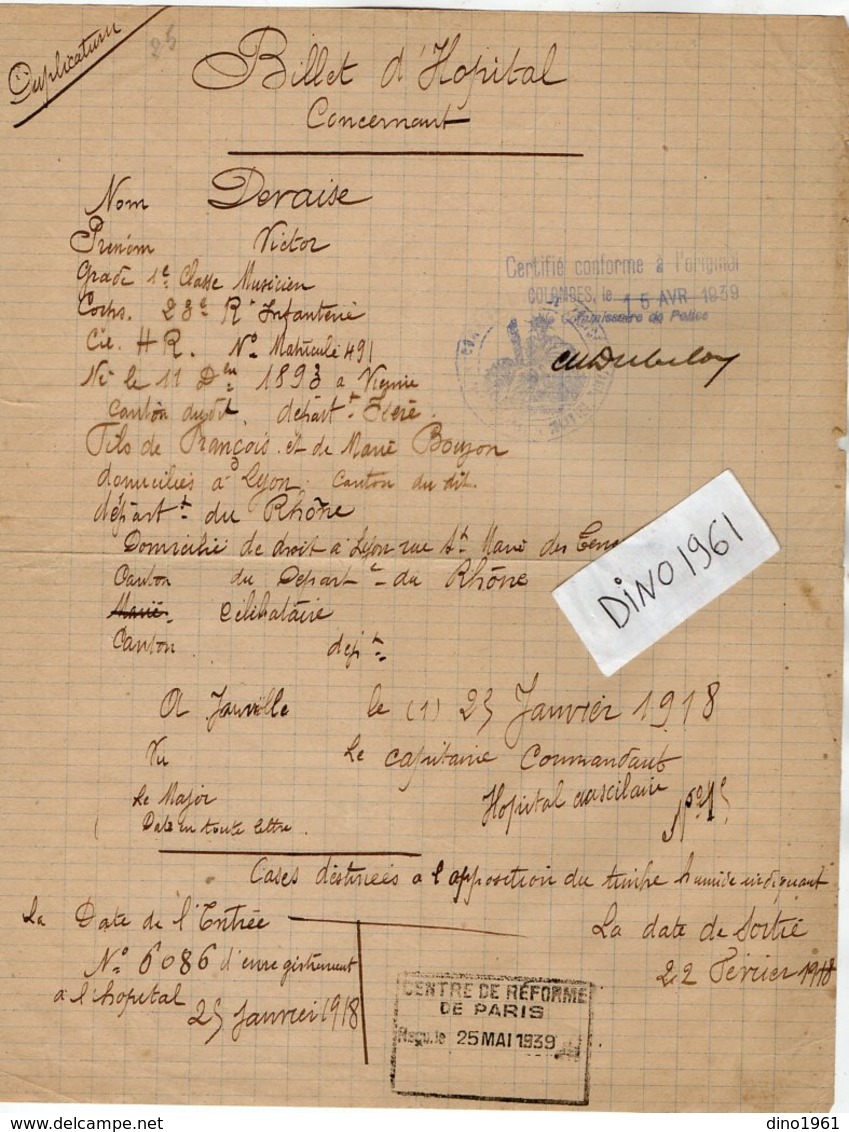 Duplicatum
25
Billet d'Hopital
Concernant
Nom Devaise
Prenom Victor
Grade 1e Classe Musicien
Corps. 23e R. Infanterie
Cie. H R. No Matricule 491
Né le 11 Dbre 1893 a Vienne
Canton du dit. départt Isère.
Fils de François et de Marie Boujon
domiciliés à Lyon. Canton du dit.
départt du Rhône
Domicilié de droit a Lyon rue St Marie des Terr
Canton du Départt du Rhône
Marié. Célibataire
Canton dept
Certifié conforme à l'original
COLOMBES, le 15 AVR 1939
Commissaire de Police
A Janville le (1) 25 Janvier 1918
Vu Le capitaine Commandant
Le Major Hopital auxcilaire
Date en toute lettre.
Cases destinées a l'apposition du timbre humide indiquant
La Date de l'Entrée
La date de Sortie
No 6086 d'enregistrement
22 Février 1918
a l'hopital
25 Janvier 1918
CENTRE DE RÉFORME
DE PARIS
Reçu le 25 MAI 1939
DiNO1961
dino1961